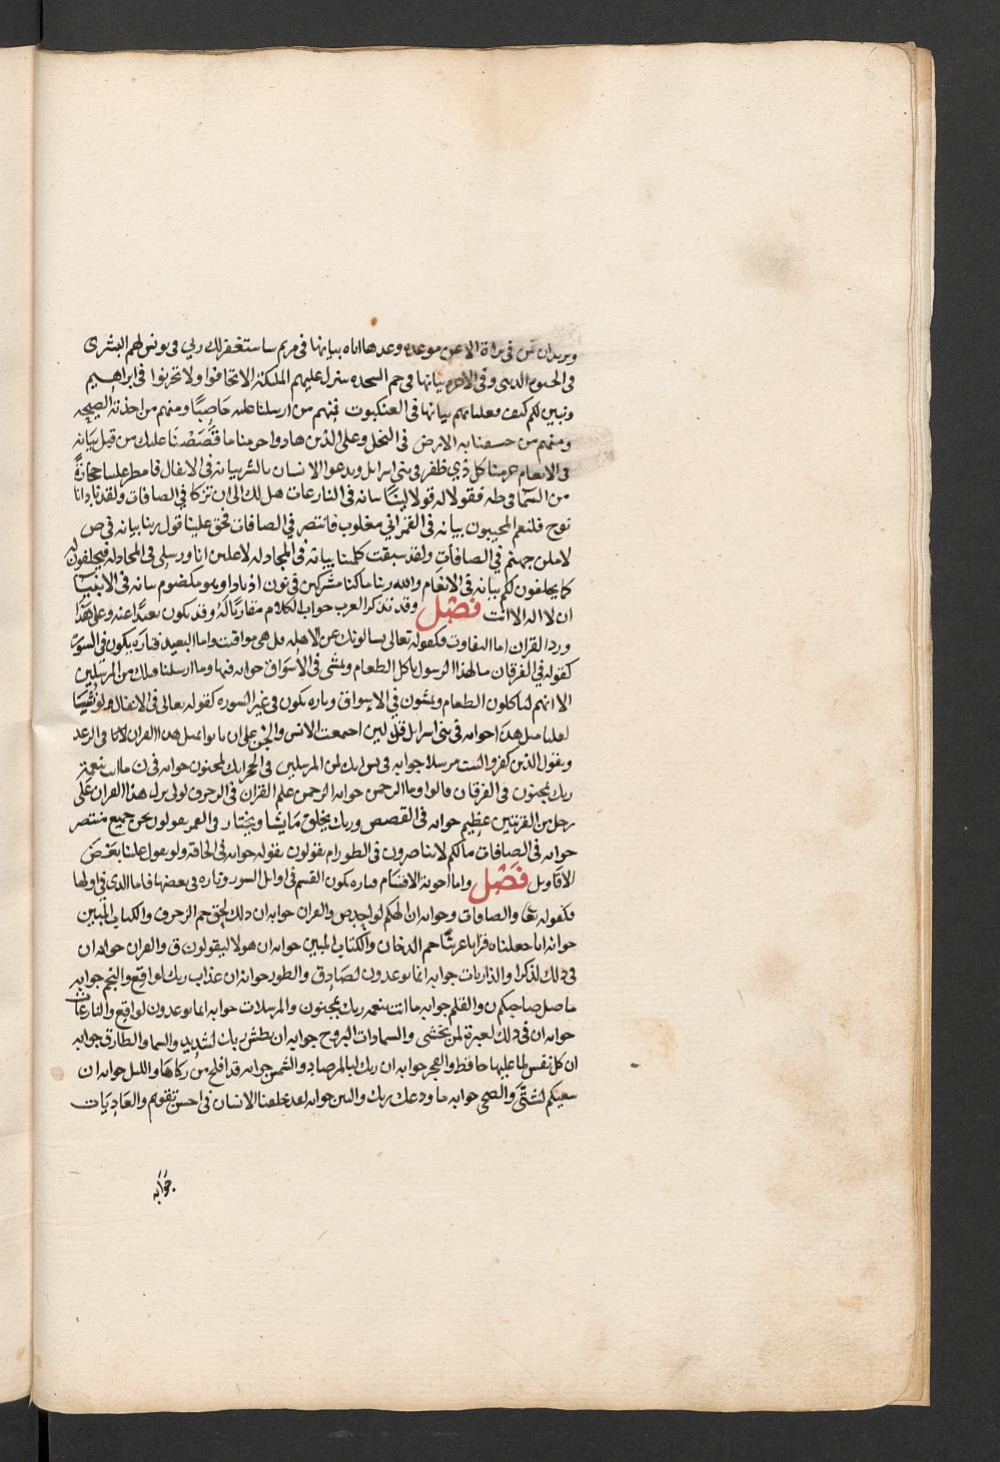 ويريدان تبن في براة الا عن موعده وعدها اياه بيانها في مريم ساستغفر لك ربي في يونس لهم البشرى
في الحيوه الدنيا وفي الاخره بيانها في حم السجده تتنزل عليهم الملئكة الا تخافوا ولا تحزنوا في ابراهيم
وتبين لكم كيف فعلنا بهم بيانها في العنكبوت فمنهم من ارسلنا عليه حاصبًا ومنهم من اخذته الصيحه
ومنهم من خسفنا به الارض في النحل وعلى الذين هادوا حرمنا ما قصصنا عليك من قبل بيانه
في الانعام حرمنا كل ذي ظفر في بني اسرايل ويدعوا الانسان بالشر بيانه في الانفال فامطر علينا حجارةً
من السما في طه فقولا له قولا لينًا بيانه في النازعات هل لك الى ان تزكا في الصافات ولقد نادانا
نوح فلنعم المجيبون بيانه في القمر اني مغلوب فانتصر في الصافات فحق علينا قول ربنا بيانه في ص
لاملن جهنم في الصافات ولقد سبقت كلمتنا بيانه في المجادله لاغلبن انا ورسلي في المجادله فيحلفون له
كما يحلفون لكم بيانه في الانعام والله ربنا ما كنا مشركين في نون اذ نادا وهو مكظوم بيانه في الانبيا
ان لا اله الا انت فصل وقد تذكر العرب جواب الكلام مقارنًا له وقد يكون بعيدًا عنه وعلى هذا
ورد القران اما المقارن فكقوله تعالى يسالونك عن الاهله قل هي مواقيت واما البعيد فتارة يكون في السورة
كقوله في الفرقان ما لهذا الرسول ياكل الطعام ويمشي في الاسواق جوابه فيها وما ارسلنا قبلك من المرسلين
الا انهم لياكلون الطعام ويمشون في الاسواق وتاره يكون في غير السوره كقوله تعالى في الانفال لو نشا
لقلنا مثل هذا جوابه في بني اسرايل قل لين اجتمعت الانس والجن على ان ياتوا بمثل هذا القران الاية في الرعد
ويقول الذين كفروا لست مرسلا جوابه في يس انك لمن المرسلين في الحجر انك لمجنون جوابه في ن ما انت بنعمة
ربك بمجنون في الفرقان قالوا وما الرحمن جوابه الرحمن علم القران في الزخرف لولا نزل هذا القران على
رجل من القريتين عظيم جوابه في القصص وربك يخلق ما يشا ويختار والقمر يقولون نحن جميع منتصر
جوابه في الصافات ما لكم لا تناصرون في الطور ام يقولون تقوله جوابه في الحاقه ولو تقول علينا بعض
الاقاويل فصل واما اجوبة الاقسام فتاره يكون القسم في اوايل السور وتاره في بعضها فاما الذي في اولها
فكقوله تعا والصافات وجوابه ان الهكم لواحد ص والقران جوابه ان ذلك لحق حم الزخرف والكتاب المبين
جوابه انا جعلناه قرانا عربيًا حم الدخان والكتاب المبين جوابه ان هولا ليقولون ق والقران جوابه ان
في ذلك لذكرا والذاريات جوابه انما توعدون لصادق والطور جوابه ان عذاب ربك لواقع والنجم جوابه
ما ضل صاحبكم ن والقلم جوابه ما انت بنعمه ربك بمجنون والمرسلات جوابه انما توعدون لواقع والنازعات
جوابه ان في ذلك لعبرة لمن يخشى والسماوات البروج جوابه ان بطش ربك لشديد والسما والطارق جوابه
ان كل نفس لما عليها حافظ والفجر جوابه ان ربك لبالمرصاد والشمس جوابه قد افلح من زكاها والليل جوابه ان
سعيكم لشتى والضحى جوابه ما ودعك ربك والتين جوابه لقد خلقنا الانسان في احسن تقويم والعاديات
جوابه